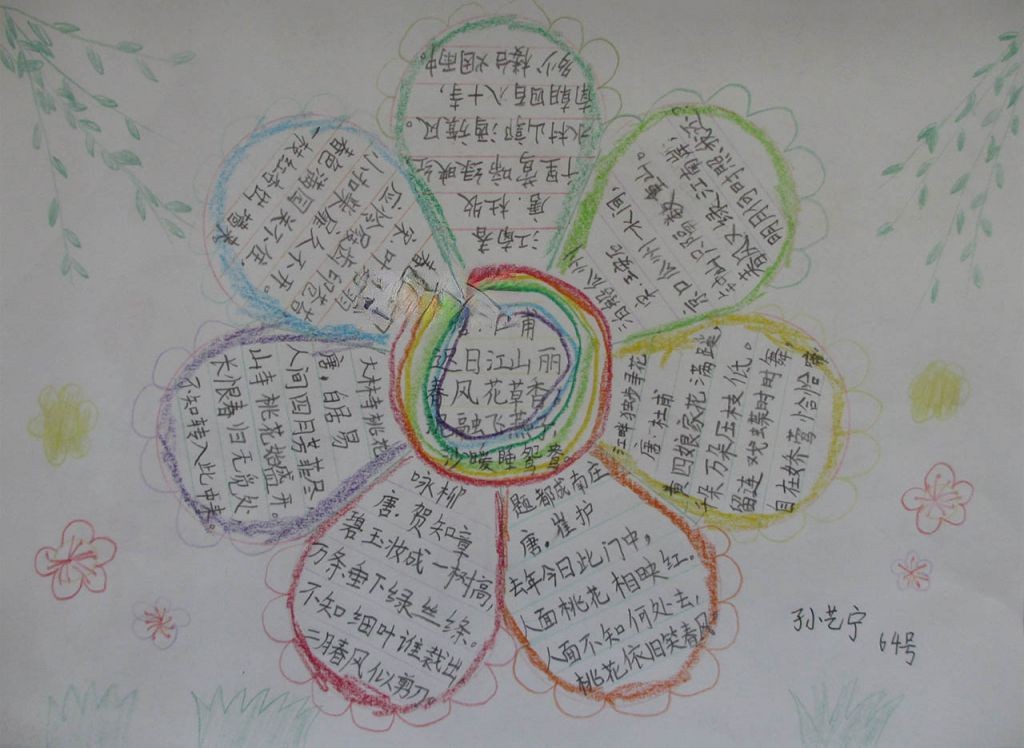 甫
迟日江山丽
春风花草香,
融飞燕子,
沙暖睡鸳鸯。
江南春
唐·杜牧
千里莺啼绿映红
水村山郭酒旗风。
南朝四百八十寺,
多少楼台烟雨中。
泊船瓜州
宋·王安石
京口瓜州一水间,
钟山只隔数重山。
春风又绿江南岸
明月何时照我还?
江畔独步寻花
唐·杜甫
黄四娘家花满蹊,
千朵万朵压枝低。
留连戏蝶时时舞,
自在娇莺恰恰啼
题都成南庄
唐。崔护
去年今日此门中,
人面桃花相映红。
人面不知何处去,
桃花依旧笑春风
咏柳
唐·贺知章
碧玉妆成一树高,
万条垂下绿丝绦。
不知细叶谁裁出
二月春风似剪刀。
大林寺桃花
唐,白居易
人间四月芳菲尽
山寺桃花始盛开。
长恨春归无觅处
不知转入此中来。
宋
应怜屐齿印苍苔
小扣柴扉久不开。
春色满园关不住
一枝红杏出墙来
孙艺宁
64号